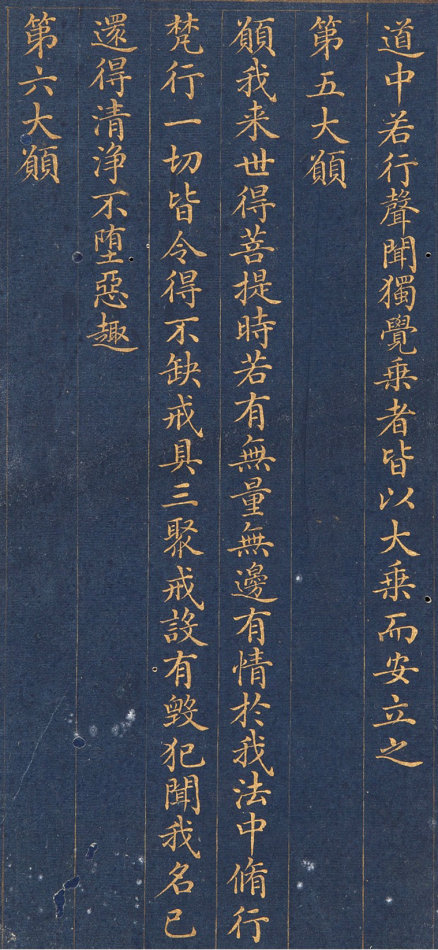 道中若行聲聞獨覺乘者皆以大乘而安立之
第五大願
願我来世得菩提時若有無量無邊有情於我法中脩行
梵行一切皆令得不缺戒具三聚戒設有毀犯聞我名已
還得清淨不墮惡趣
第六大願